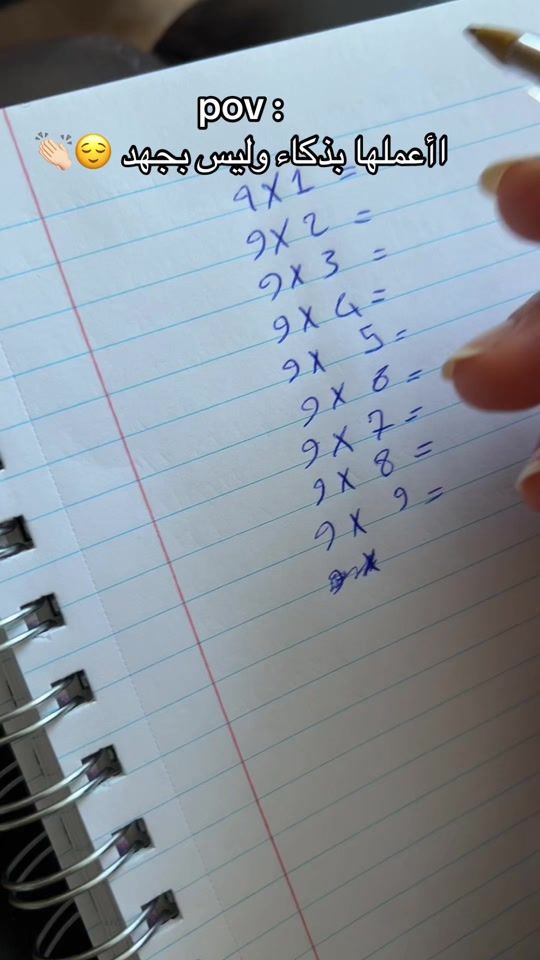 pov :
اأعملها بذكاء وليس بجهد 😌👏🏻
9 X 1 =
9 X 2 =
9 X 3 =
9 X 4 =
9 X 5 =
9 X 6 =
9 X 7 =
9 X 8 =
9 X 9 =